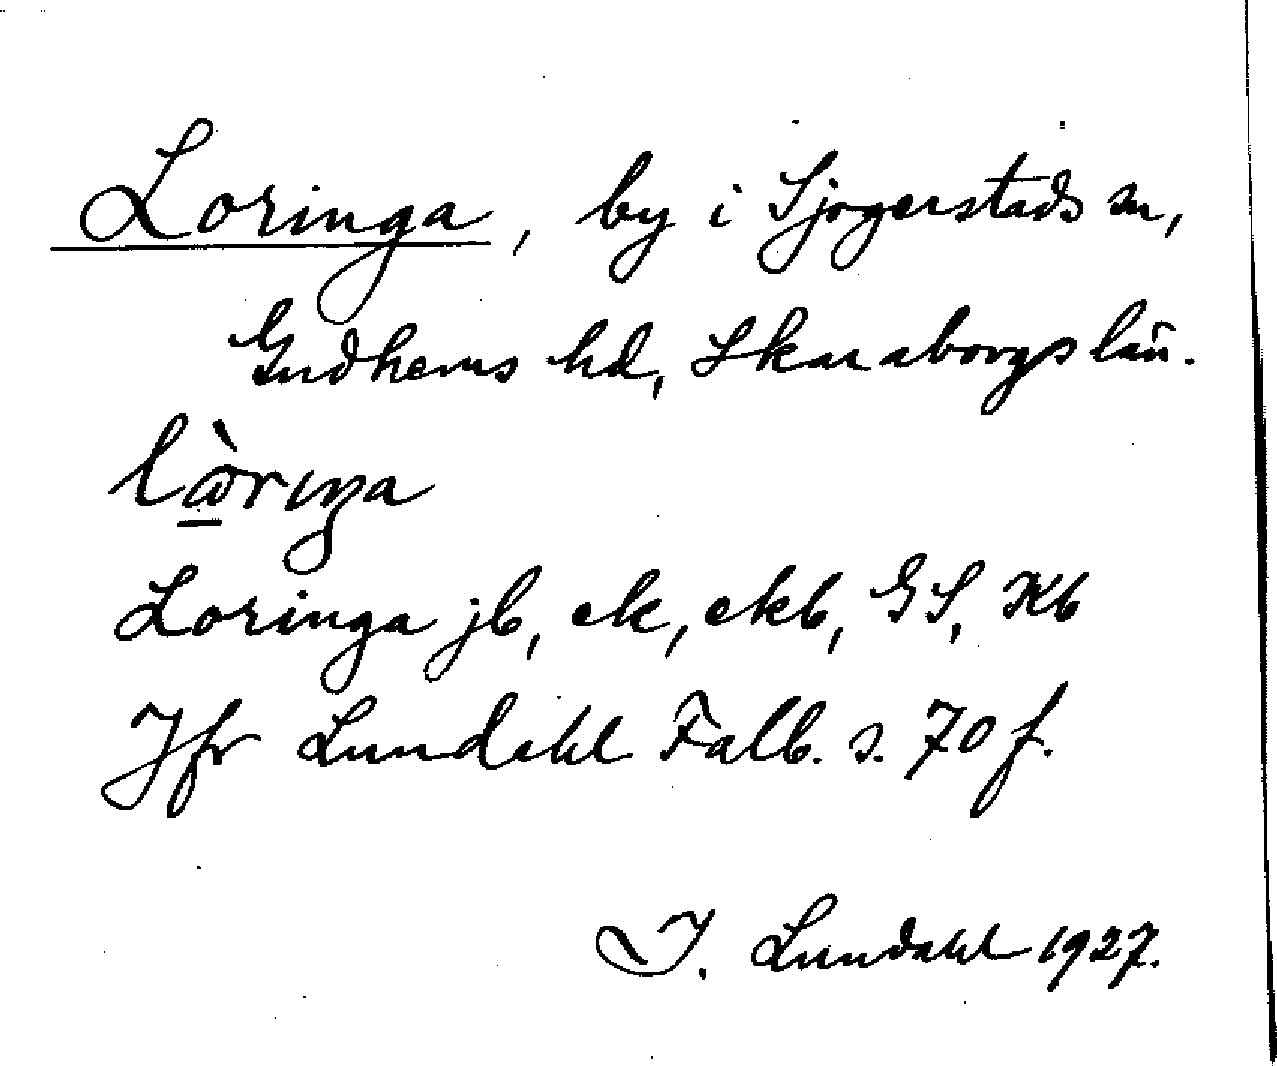 Loringa, by i Sjogerstads sn,
Gudhems hd, Skaraborgs län.
Loringa jb, ek, ekb, GS, Kb
Jfr Lundahl Falb. s. 70 f.
I. Lundahl 1927.